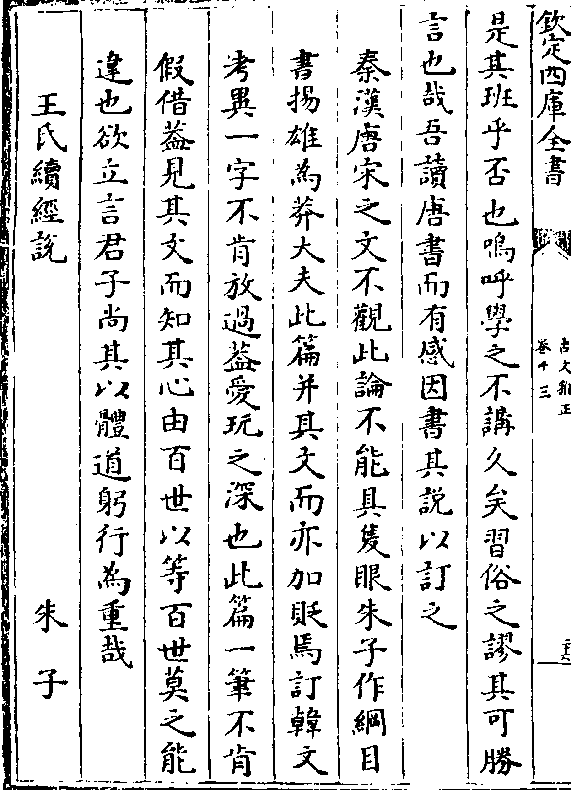 欽定四庫全書
古文雅正
卷十三
是其班乎否也嗚呼學之不講久矣習俗之謬其可勝
言也哉吾讀唐書而有感因書其説以訂之
秦漢唐宋之文不觀此論不能具隻眼朱子作綱目
書揚雄為莽大夫此篇并其文而亦加貶焉訂韓文
考異一字不肯放過葢愛玩之深也此篇一筆不肯
假借葢見其文而知其心由百世以等百世莫之能
違也欲立言君子尚其以體道躬行為重哉
王氏續經説 朱子